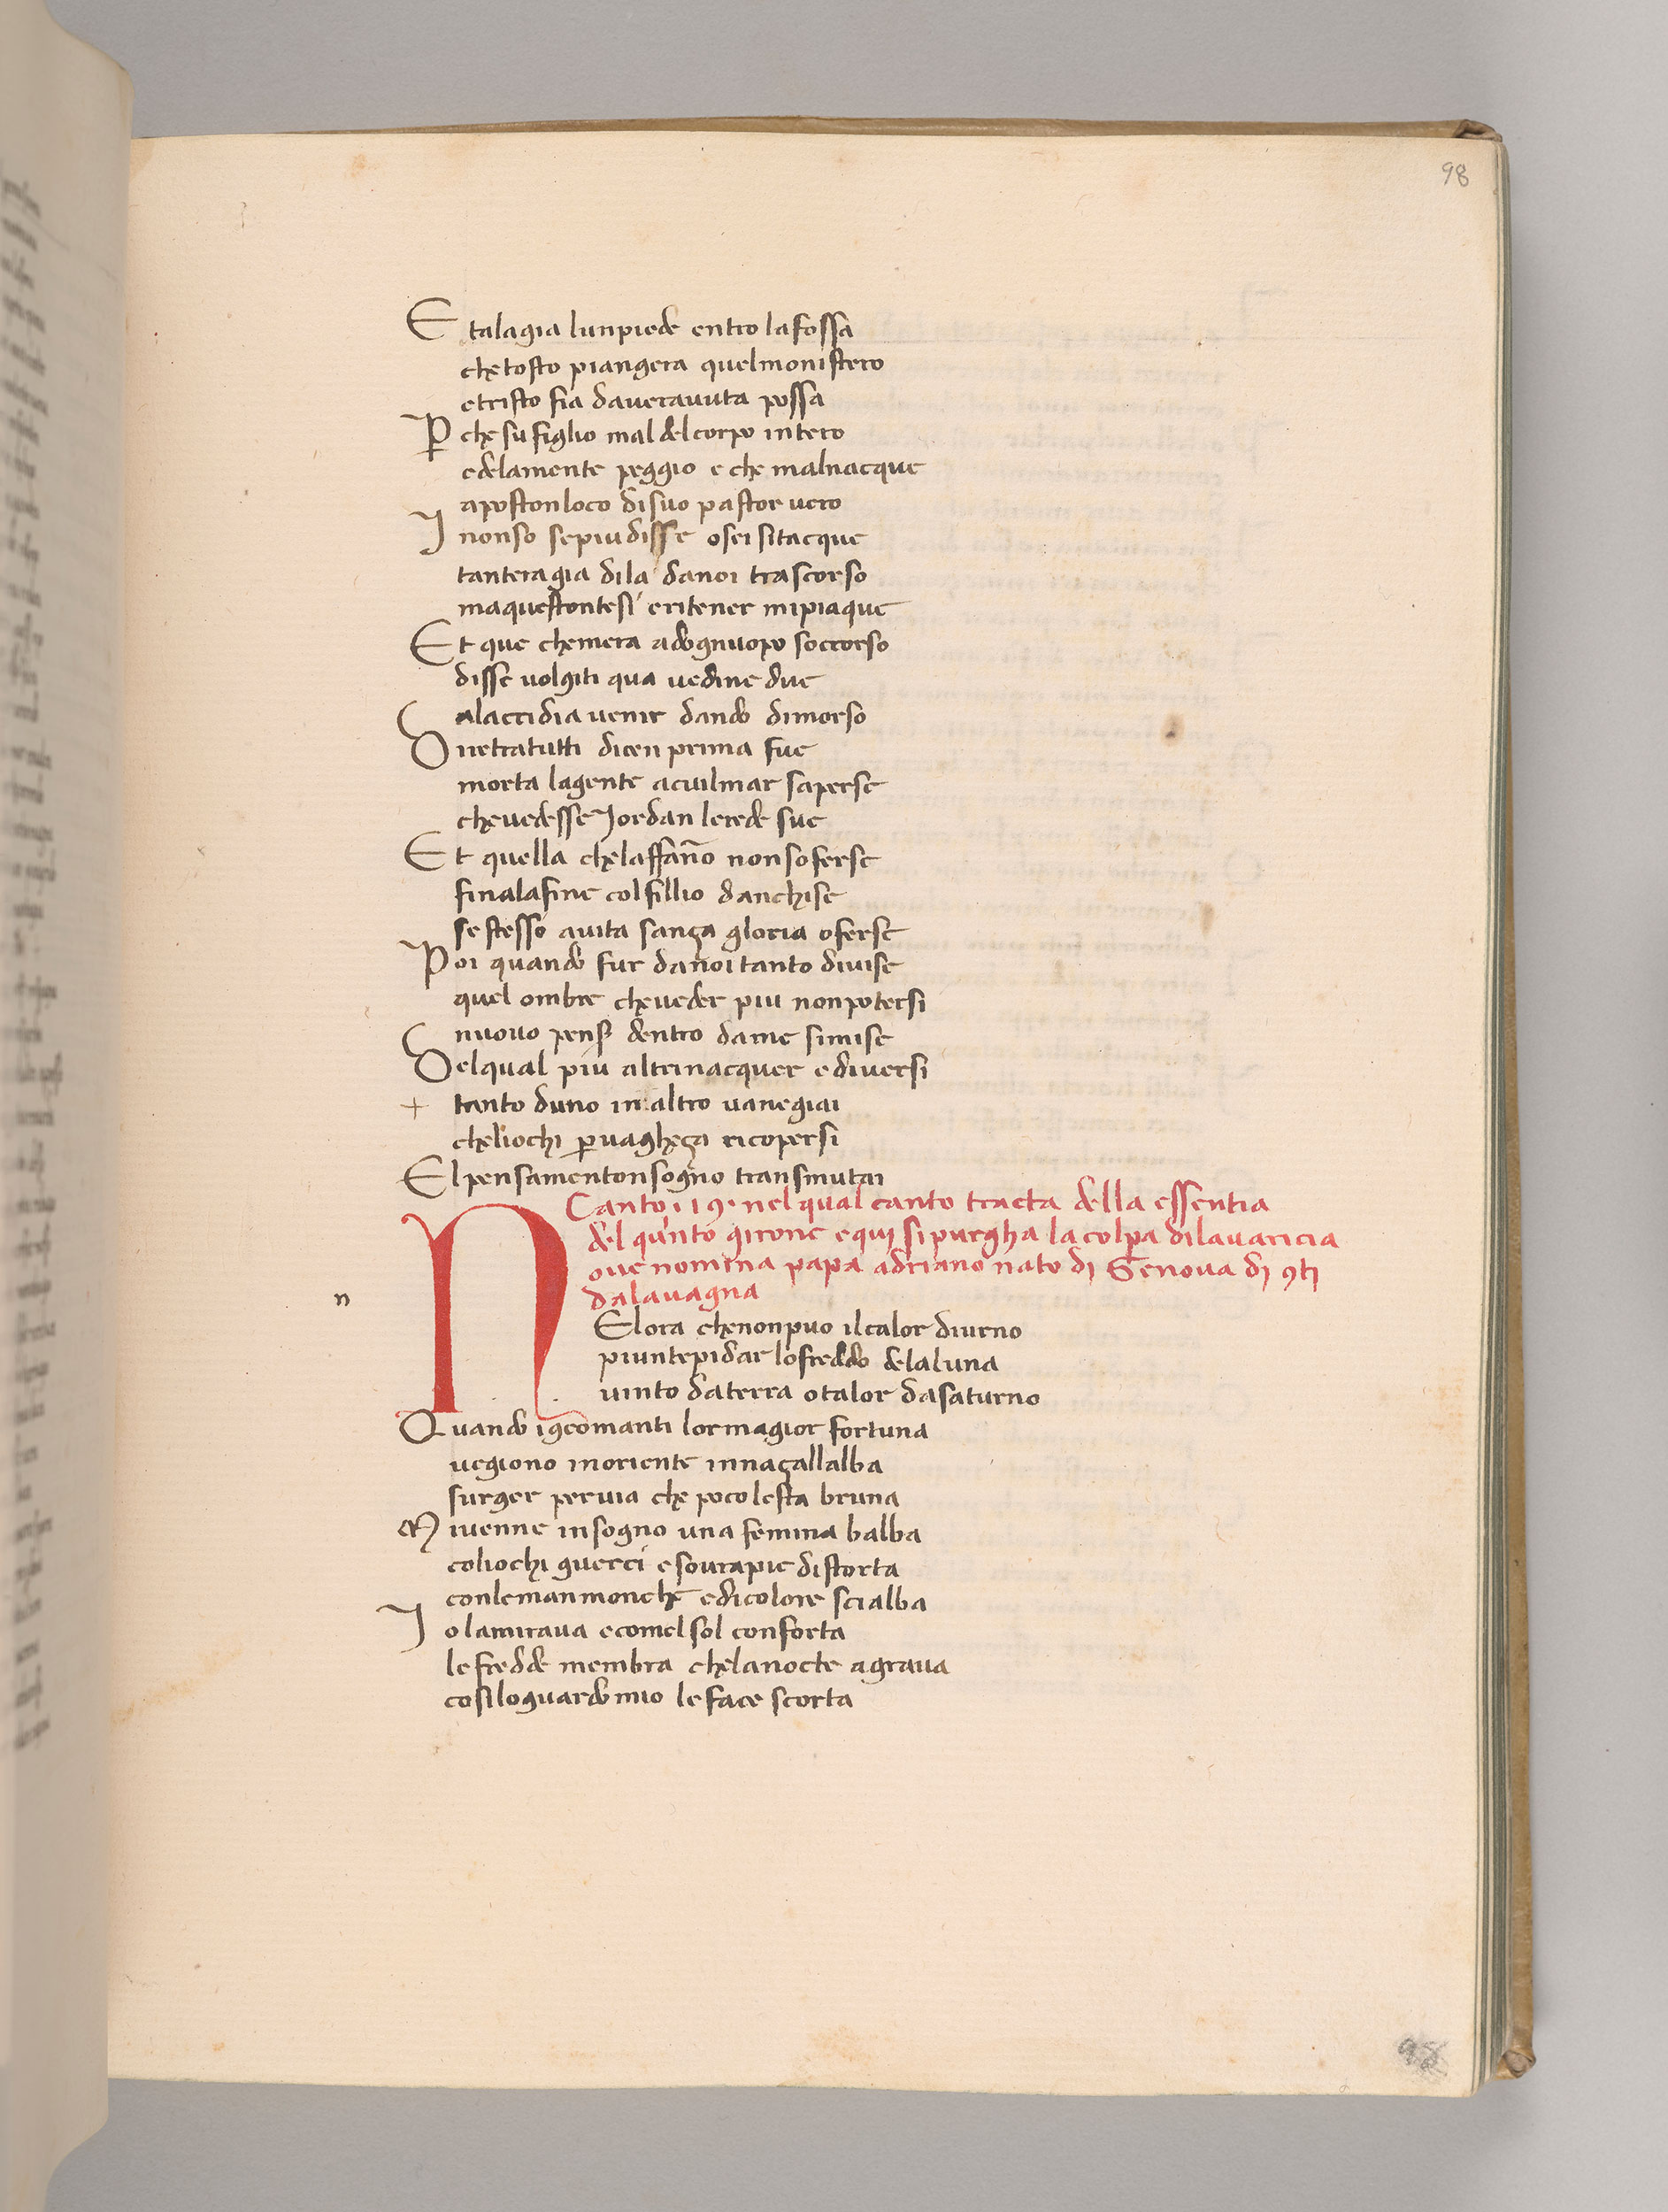 98
E talagia lunpiede entro lafossa
chetosto piangera quelmonistero
etristo fia daverauuta possa
P che su figlio mal delcorpo intero
edelamente peggio e che malnacque
apostonloco disuo pastor uero
I nonso sepiudisse osei sitacque
tanteragia dila danoi trascorso
maquestontesi eritener mipiaque
Et que chemera adognuopo soccorso
disse uolgiti qua uedine due
alaccidia uenir dando dimorso
D rietratutti dicen prima fue
morta lagente acuilmar saperse
cheuedesse Iordan lerede sue
Et quella chelaffanno nonsoferse
finalafine colfillio danchise
se stesso auita sança gloria oferse
Poi quando fur danoi tanto diuise
quel ombre cheueder piu nonpotersi
nuouo pens dentro dame simise
Delqual piu altrinacquer ediuersi
+ tanto duno in altro uanegiai
cheliochi p uagheça ricopersi
El pensamentonsogno transmutai
Canto .19. nel qual canto tracta della essentia
del quinto girone equi si purgha la colpa dilauaricia
oue nomina papa adriano nato di Genoua di 9ti
dalauagna
n
N El ora chenonpuo ilcalor diurno
piuntepidar lofreddo delaluna
uinto daterra otalor dasaturno
Quando igeomanti lor magior fortuna
uegiono inoriente innaçallalba
surger peruia che pocolesta bruna
M iuenne insogno una femina balba
coliochi guerci esourapie distorta
conlemanmonche edicolore scialba
I olamiraua ecomelsol conforta
lefredde membra chelanocte agraua
cosiloguardomio leface scorta
98